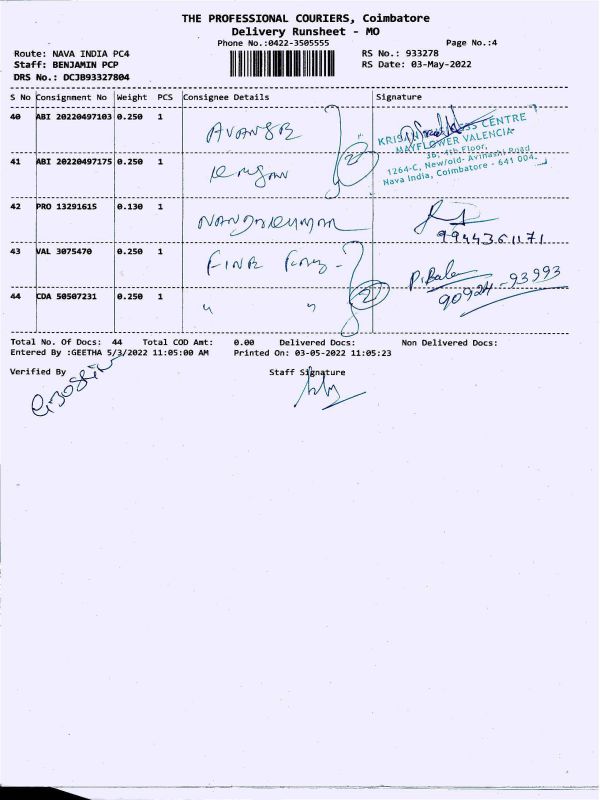 THE PROFESSIONAL COURIERS, Coimbatore
Delivery Runsheet - MO
Phone No.:0422-3505555 Page No.:4
Route: NAVA INDIA PC4 RS No.: 933278
Staff: BENJAMIN PCP RS Date: 03-May-2022
DRS No.: DCJB93327804
S No Consignment No Weight PCS Consignee Details Signature
40 ABI 20220497103 0.250 1
41 ABI 20220497175 0.250 1
CENTRE
MAYFLOWER VALENCIA
36, 4th Floor,
1264-C, New/old- Avinashi Road
Nava India, Coimbatore - 641 004.
2
42 PRO 13291615 0.130 1 NANDAKUMAR
9944361171
43 VAL 3075470 0.250 1 FINE
P. Bala
90924-93993
44 CDA 50507231 0.250 1 " " 2
Total No. Of Docs: 44 Total COD Amt: 0.00 Delivered Docs: Non Delivered Docs:
Entered By :GEETHA 5/3/2022 11:05:00 AM Printed On: 03-05-2022 11:05:23
Verified By Staff Signature